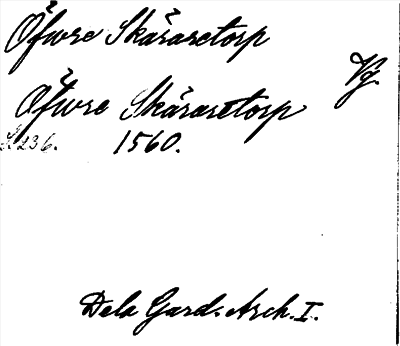 Öfwre Skäraretorp
Vg.
Öfwre Skäraretorp
S. 236. 1560.
Dela Gard. Arch. I.